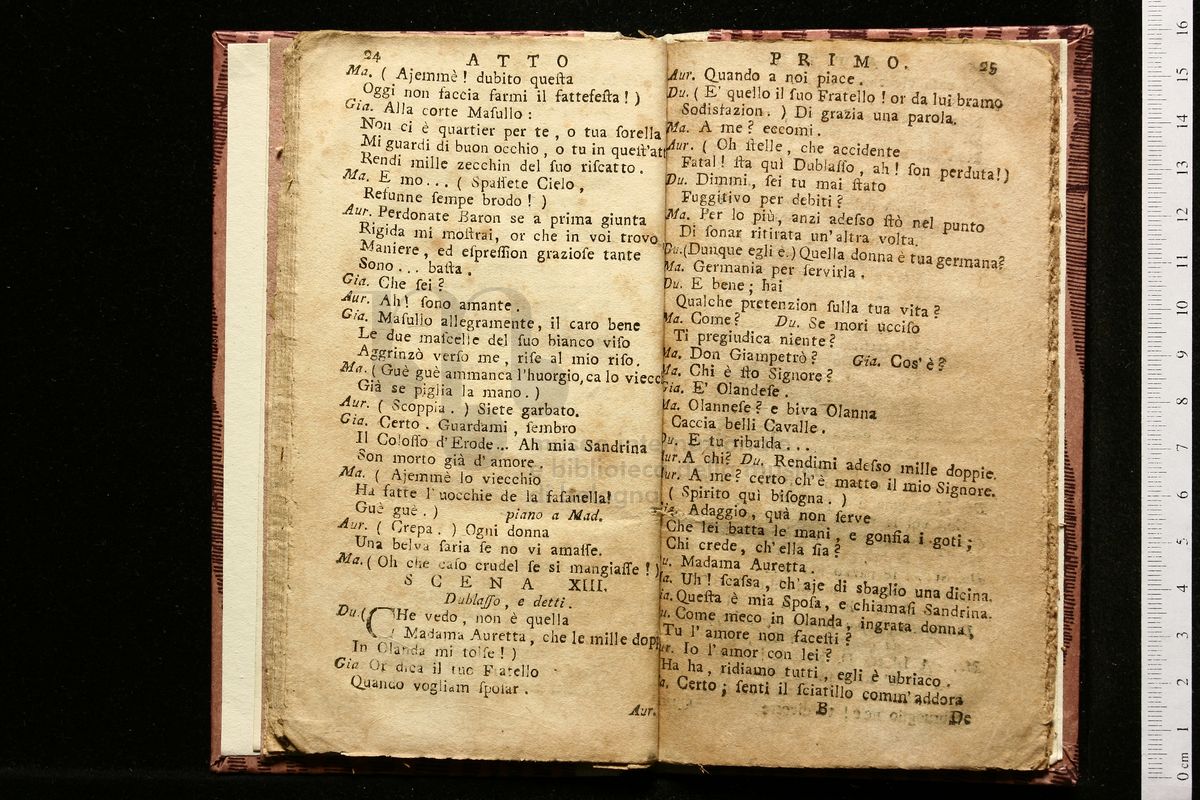 24 ATTO
Ma. ( Ajemmè ! dubito queſta
Oggi non faccia farmi il fatteſeſta ! )
Gia. Alla corte Maſullo :
Non ci è quartier per te , o tua ſorella
Mi guardi di buon occhio , o tu in queſt'att
Rendi mille zecchin del ſuo riſcatto .
Ma. E mo ... ( Spaſſete Cielo ,
Reſunne ſempe brodo ! )
Aur. Perdonate Baron se a prima giunta
Rigida mi moſtrai, or che in voi trovo
Maniere , ed eſpreſſion grazioſe tante
Sono ... baſta .
Gia. Che ſei ?
Aur. Ah! ſono amante .
Gia. Maſullo allegramente, il caro bene
Le due maſcelle del ſuo bianco viſo
Aggrinzò verſo me , riſe al mio riſo .
Ma. ( Guè guè ammanca l'huorgio, ca lo viecc
Già se piglia la mano . )
Aur. ( Scoppia . ) Siete garbato.
Gia. Certo . Guardami , ſembro
Il Coloſſo d'Erode ... Ah mia Sandrina
Son morto già d'amore .
Ma. ( Ajemmè lo viecchio
Ha fatte l'uocchie de la faſanella!
Guè guè . ) piano a Mad.
Aur. ( Crepa . ) Ogni donna
Una belva ſaria ſe no vi amaſſe.
Ma. ( Oh che caſo crudel ſe si mangiaſſe ! )
SCENA XIII.
Dublaſſo , e detti .
Du. ( CHe vedo , non è quella
Madama Auretta, che le mille dopp
In Olanda mi tolſe ! )
Gia Or dica il tuo Fratello
Quando vogliam ſpoſar .
Aur.
PRIMO. 25
Aur. Quando a noi piace .
Du. ( E' quello il ſuo Fratello ! or da lui bramo
Sodisfazion . ) Di grazia una parola.
Ma. A me ? eccomi .
Aur. ( Oh ſtelle , che accidente
Fatal ! ſta quì Dublaſſo , ah ! ſon perduta! )
Du. Dimmi , ſei tu mai ſtato
Fuggitivo per debiti ?
Ma. Per lo più, anzi adeſso ſtò nel punto
Di ſonar ritirata un'altra volta.
Du. (Dunque egli è.) Quella donna è tua germana?
Ma. Germania per ſervirla .
Du. E bene ; hai
Qualche pretenzion ſulla tua vita ?
Ma. Come ? Du. Se mori ucciſo
Ti pregiudica niente ?
Ma. Don Giampetrò ? Gia. Cos'è ?
Ma. Chi è ſto Signore ?
Gia. E' Olandeſe .
Ma. Olanneſe ? e biva Olanna
Caccia belli Cavalle .
Du. E tu ribalda ...
Aur. A chi? Du. Rendimi adeſso mille doppie.
Aur. A me ? certo ch'è matto il mio Signore.
( Spirito quì biſogna . )
Gia. Adaggio , quà non ſerve
Che lei batta le mani , e gonfia i goti ;
Chi crede, ch'ella ſia ?
Du. Madama Auretta .
Ma. Uh ! ſcaſsa , ch'aje di sbaglio una dicina.
Gia. Queſta è mia Spoſa, e chiamaſi Sandrina.
Du. Come meco in Olanda , ingrata donna,
Tu l'amore non faceſti ?
Aur. Io l'amor con lei ?
Ha ha , ridiamo tutti , egli è ubriaco .
Ma. Certo ; ſenti il ſciatillo comm'addora
B De